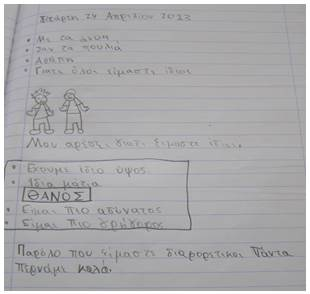 Τετάρτη 24 Απριλίου 2013
• Με τα
• Σαν τα πουλιά
• Αγάπη
• Γιατί όλοι είμαστε ίδιοι
Μου αρέσει γιατί είμαστε ίδιοι.
• Έχουμε ίδιο ύψος.
• Ίδια μάτια
ΘΑΝΟΣ
• Είμαι πιο αδύνατος
• Είμαι πιο γρήγορος
Παρόλο που είμαστε διαφορετικοί Πάντα
περνάμε καλά.